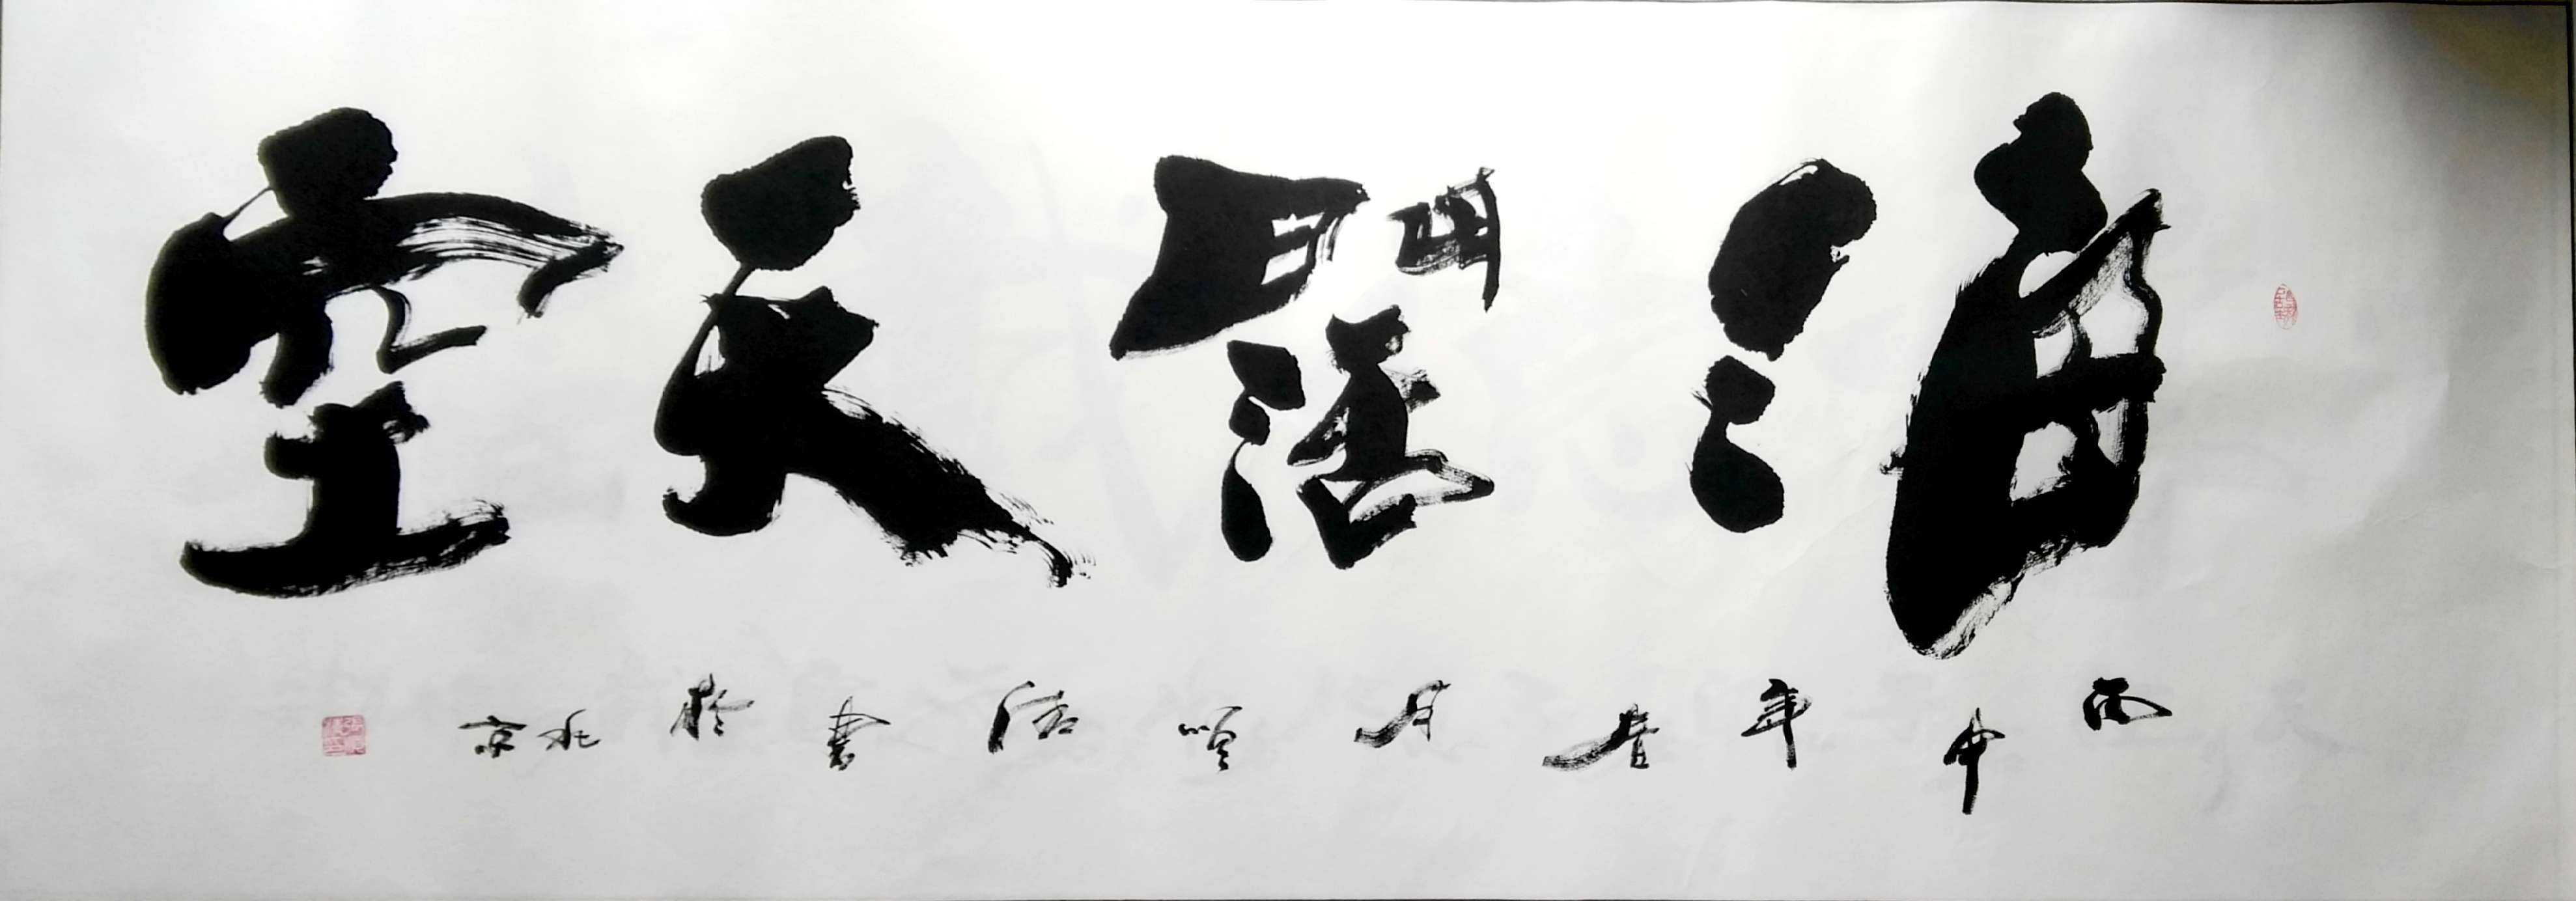 海阔天空
丙申年春月 书於北京